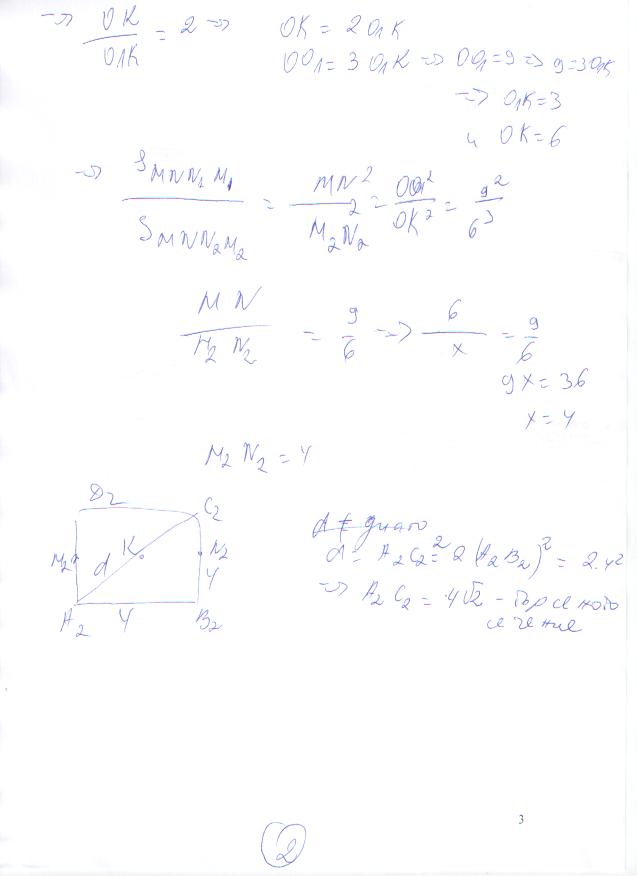 => OK / O1K = 2 => OK = 2 O1K
OO1 = 3 O1K => OO1 = 9 => 9 = 3O1K
=> O1K = 3
и OK = 6
=> S MNN1M1 / S MNN2M2 = MN² / M2N2² = OO1² / OK² = 9² / 6²
MN / M2N2 = 9/6 => 6/x = 9/6
9x = 36
x = 4
M2N2 = 4
D2 C2
M2 d K N2
4
A2 4 B2
d = A2C2² = 2(A2B2)² = 2.4²
=> A2C2 = 4√2 - търсеното
сечение
3
2